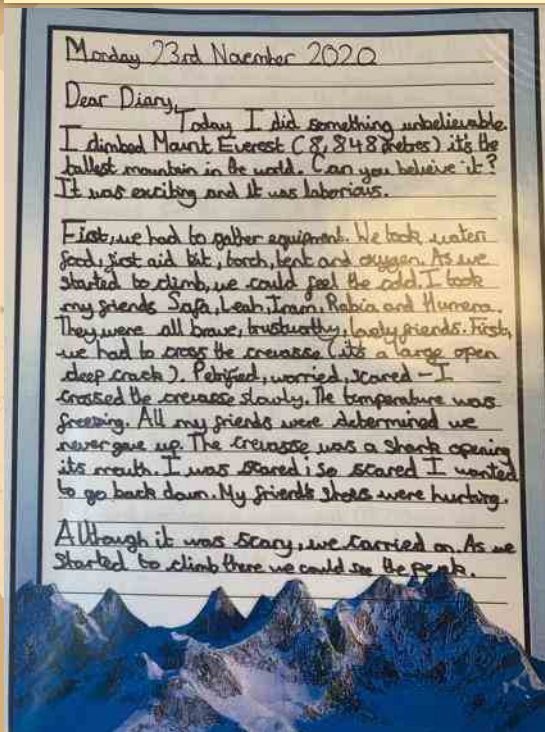 Monday 23rd November 2020
Dear Diary,
Today I did something unbelievable.
I climbed Mount Everest (8,848 metres) it's the
tallest mountain in the world. Can you believe it?
It was exciting and it was laborious.
First, we had to gather equipment. We took water,
food, first aid kit, torch, tent and oxygen. As we
started to climb, we could feel the cold. I took
my friends Safa, Leah, Iram, Rabia and Humera.
They were all brave, trustworthy, lovely friends. First,
we had to cross the crevasse (it's a large open
deep crack). Petrified, worried, scared – I
crossed the crevasse slowly. The temperature was
freezing. All my friends were determined we
never gave up. The crevasse was a shark opening
its mouth. I was scared; so scared I wanted
to go back down. My friend's shoes were hurting.
Although it was scary, we carried on. As we
started to climb there we could see the peak.